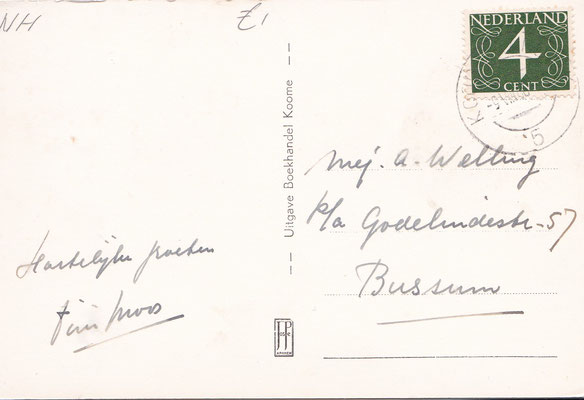 NH
£1
NEDERLAND
4
CENT
Uitgave Boekhandel Koome
Mej. A. Welling
p/a Godelindestr-57
Bussum
Hartelijke groeten
JosPé
ARNHEM